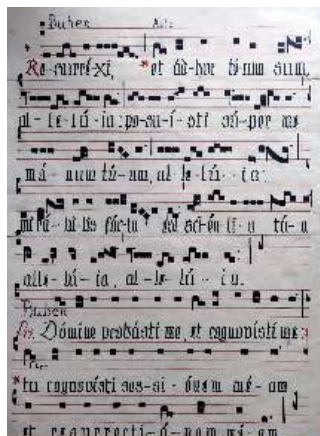 Pueben
Resurréxi, * et ád-huc té-cum sum,
al-le-lú-ia: po-su-í-sti sú-per me
má-num tú-am, al-le-lú-ia:
mirá-bi-lis fác-ta est sci-én-ti-a tú-a
alle-lú-ia, al-le-lú-ia.
Ps. Dómine probásti me, et cognovísti me:
* tu cognovísti ses-si-ónem mé-am
et resurrecti-ó-nem mé-am